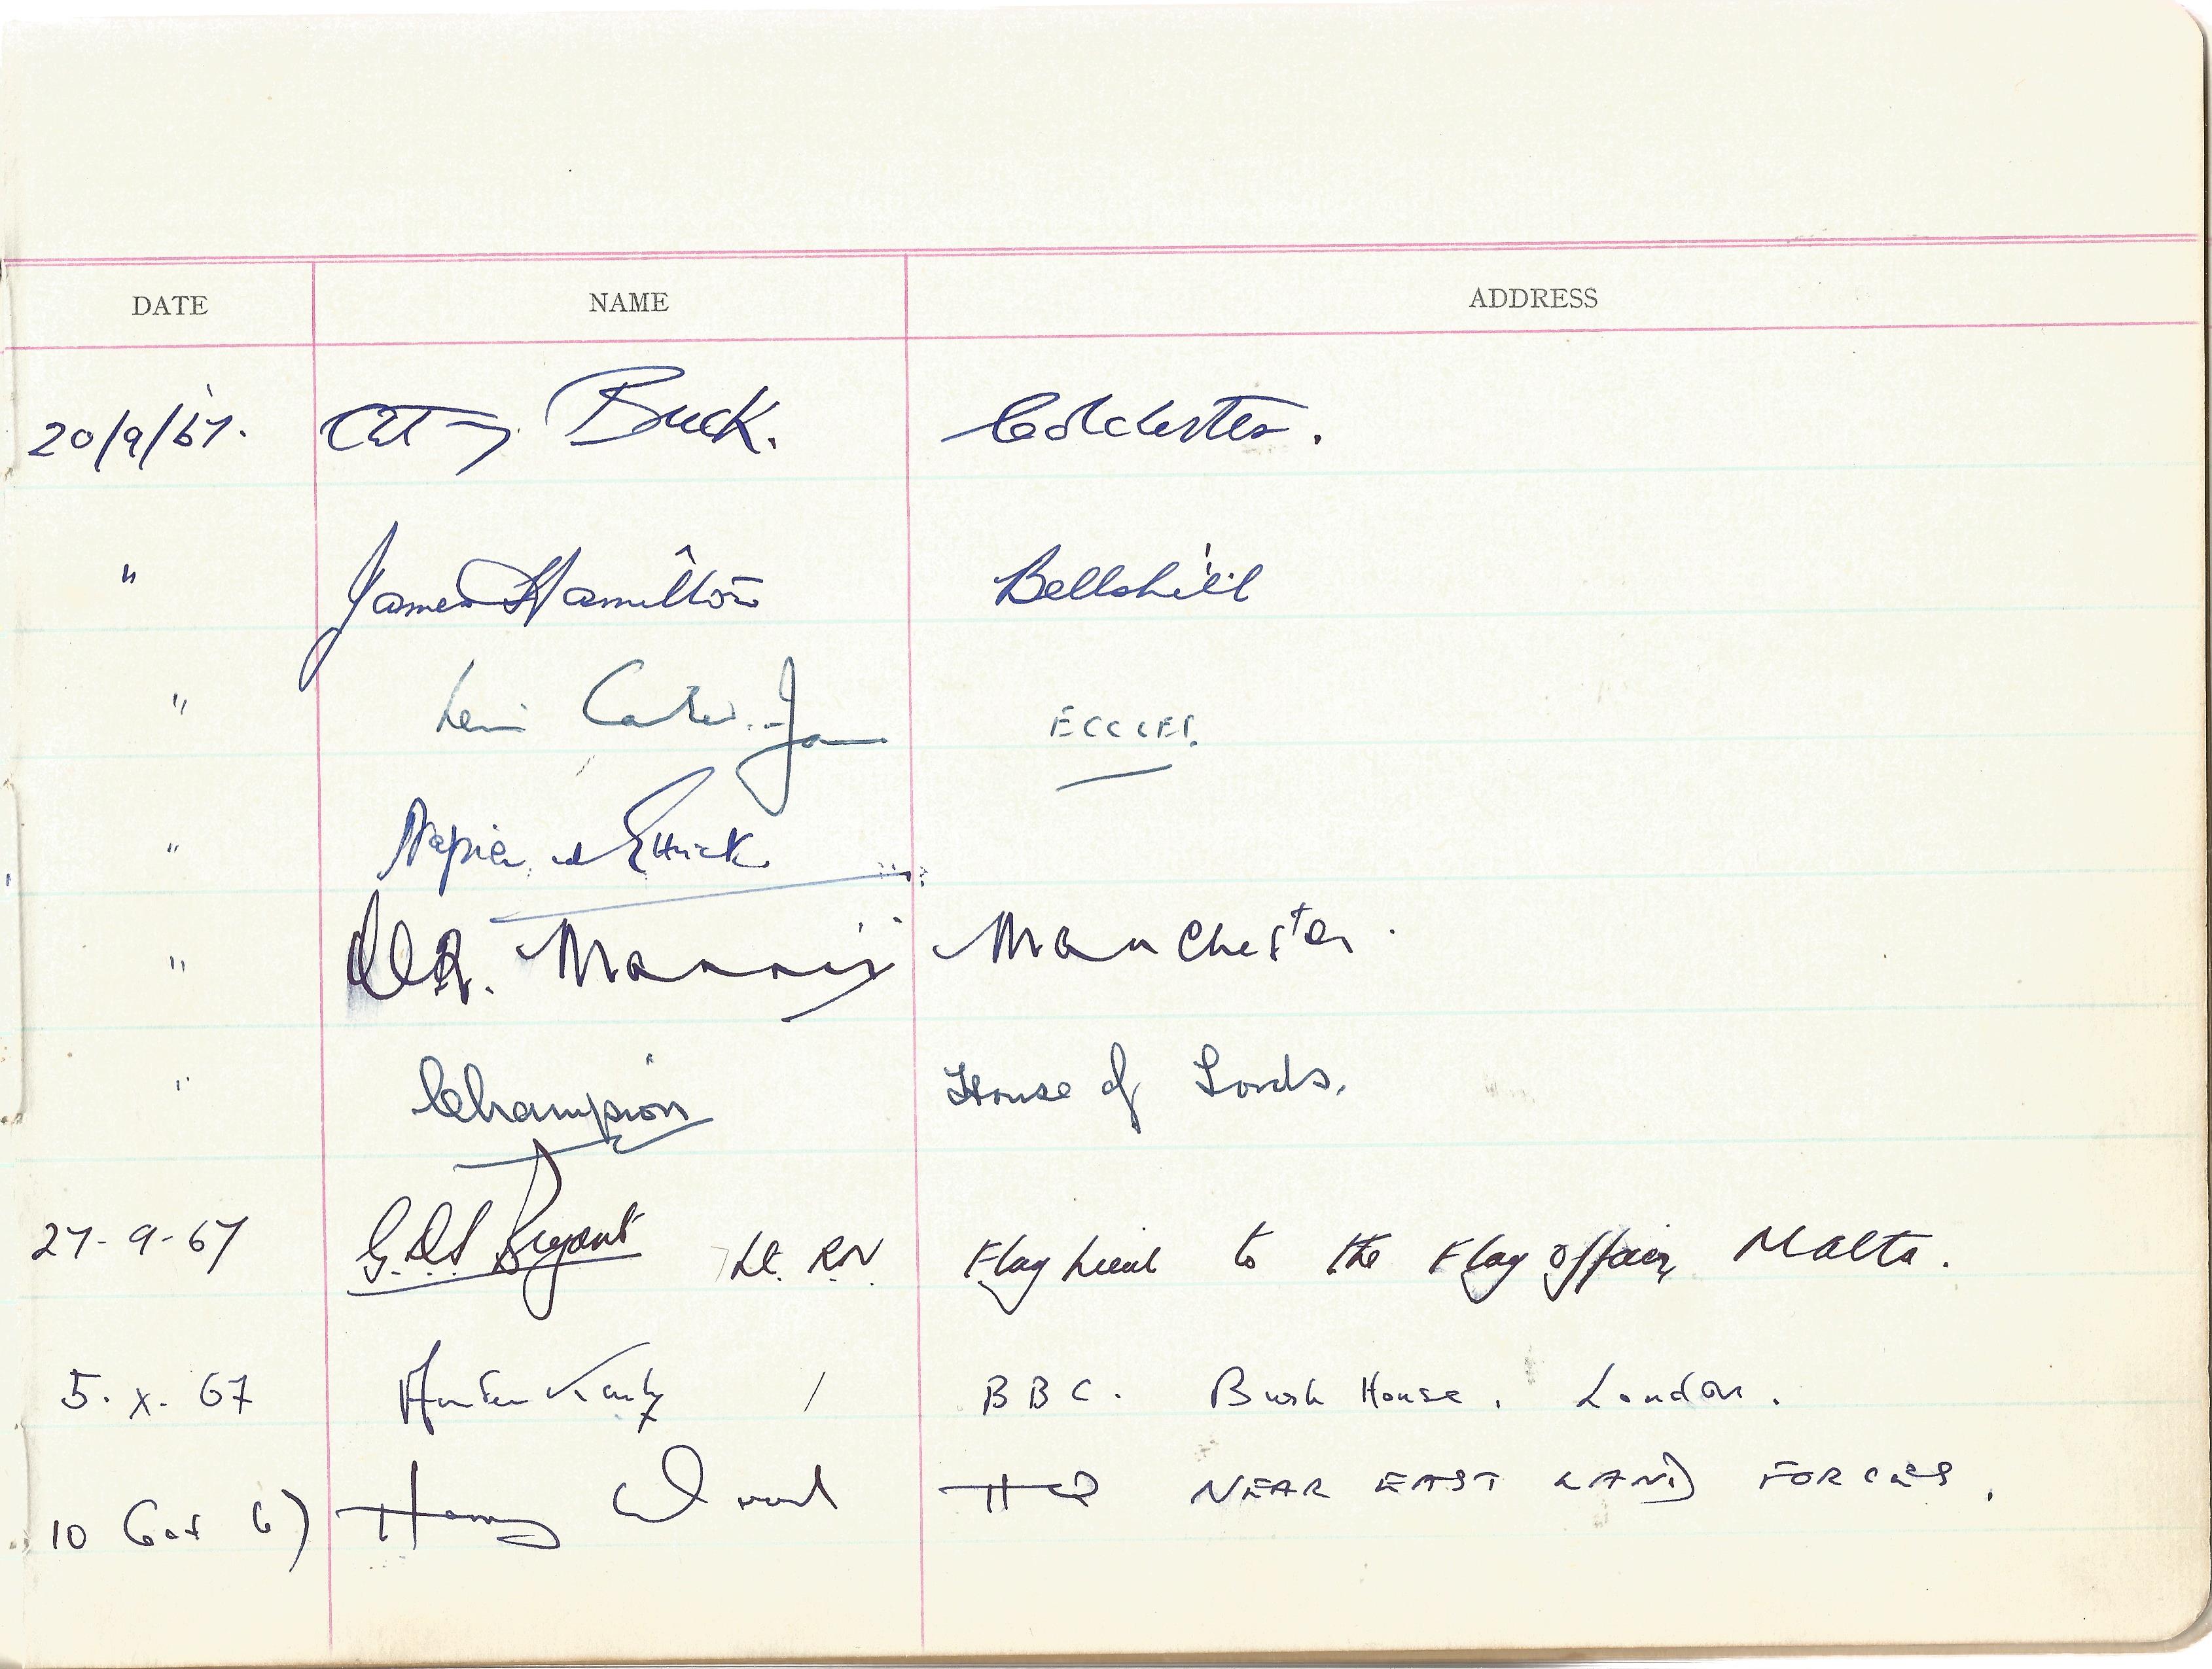 DATE NAME ADDRESS
20/9/67. Antony Buck. Colchester.
" James Hamilton Bellshill
" Lewis Carter-Jones ECCLES.
" Napier and Ettrick
" Morris Manchester.
" Champion House of Lords.
27-9-67 G.D.S Bryant Lt. R.N. Flag Lieut to the Flag Officer, Malta.
5. x. 67 BBC. Bush House, London.
10 Oct 67 Harry HQ NEAR EAST LAND FORCES.